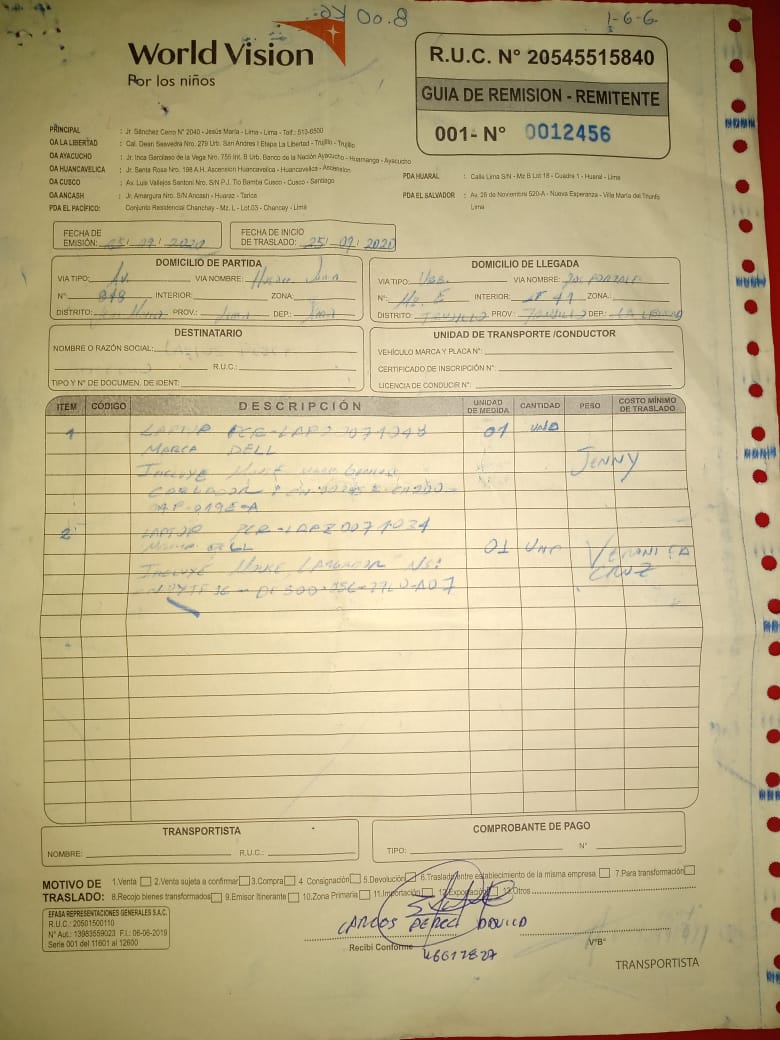 1-6-6
World Vision
Por los niños
R.U.C. N° 20545515840
GUIA DE REMISION - REMITENTE
001- N° 0012456
PRINCIPAL : Jr. Sánchez Cerro N° 2040 - Jesús María - Lima - Telf.: 513-6500
OA LA LIBERTAD : Cal. Dean Saavedra Nro. 279 Urb. San Andres I Etapa La Libertad - Trujillo - Trujillo
OA AYACUCHO : Jr. Inca Garcilaso de la Vega Nro. 755 Int. B Urb. Banco de la Nación Ayacucho - Huamanga - Ayacucho
OA HUANCAVELICA : Jr. Santa Rosa Nro. 198 A.H. Ascension Huancavelica - Huancavelica - Ascension
OA CUSCO : Av. Luis Vallejos Santoni Nro. S/N P.J. Tio Bamba Cusco - Cusco - Santiago
OA ANCASH : Jr. Amargura Nro. S/N Ancash - Huaraz - Tarica
PDA EL PACÍFICO: Conjunto Residencial Chanchay - Mz. L - Lot.03 - Chancay - Lima
PDA HUARAL : Calle Lima S/N - Mz B Lot 18 - Cuadra 1 - Huaral - Lima
PDA EL SALVADOR : Av. 26 de Noviembre 520-A - Nueva Esperanza - Villa María del Triunfo
Lima
FECHA DE
EMISIÓN: 25/09/2020
FECHA DE INICIO
DE TRASLADO: 25/09/2020
DOMICILIO DE PARTIDA
VIA TIPO: Av. VIA NOMBRE:
N°: 848 INTERIOR: ZONA:
DISTRITO: PROV.: Lima DEP.: Lima
DOMICILIO DE LLEGADA
VIA TIPO: Urb. VIA NOMBRE:
N°: Mz. E INTERIOR: ZONA.:
DISTRITO: TRUJILLO PROV: TRUJILLO DEP.: LA LIBERTAD
DESTINATARIO
NOMBRE O RAZÓN SOCIAL:
R.U.C.:
TIPO Y N° DE DOCUMEN. DE IDENT:
UNIDAD DE TRANSPORTE /CONDUCTOR
VEHÍCULO MARCA Y PLACA N°:
CERTIFICADO DE INSCRIPCIÓN N°:
LICENCIA DE CONDUCIR N°:
ITEM CÓDIGO DESCRIPCIÓN UNIDAD DE MEDIDA CANTIDAD PESO COSTO MÍNIMO DE TRASLADO
1 LAPTOP 01 UND
MARCA DELL
INCLUYE JENNY
CARGADOR
2 LAPTOP PCR-LAP20071034
MARCA DELL 01 UND VERONICA
INCLUYE MOUSE, CARGADOR NS: CRUZ
TRANSPORTISTA
NOMBRE: R.U.C.:
COMPROBANTE DE PAGO
TIPO: N°
MOTIVO DE
TRASLADO:
1.Venta 2.Venta sujeta a confirmar 3.Compra 4 Consignación 5.Devolución 6.Traslado entre establecimiento de la misma empresa 7.Para transformación
8.Recojo bienes transformados 9.Emisor Itinerante 10.Zona Primaria 11.Importación 12.Exportación 13.Otros
EFASA REPRESENTACIONES GENERALES S.A.C.
R.U.C.: 20501500110
N° Aut.: 13983559023 F.I.: 06-06-2019
Serie 001 del 11601 al 12600
CARLOS PEREZ DAVILA
Recibí Conforme
46617827
V°B°
TRANSPORTISTA